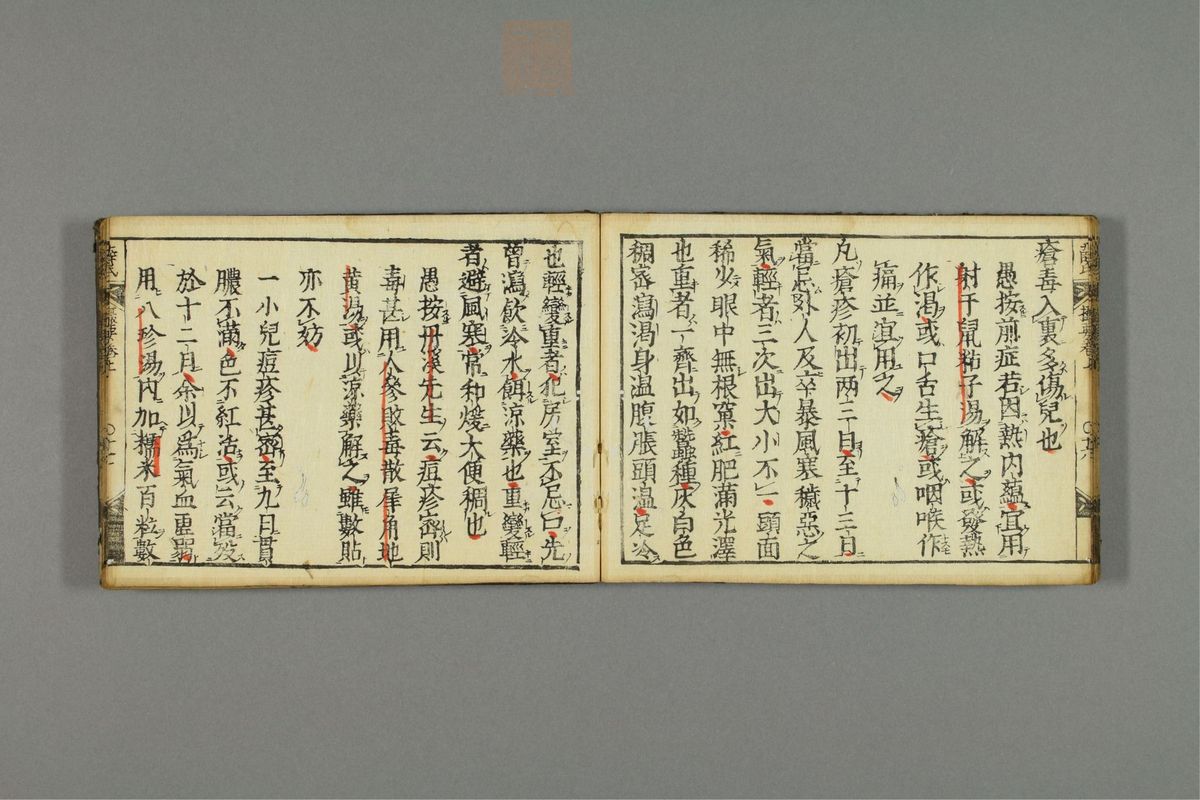 瘡毒入裏多傷兒也
愚按前症若因熱内蘊宜用
射干鼠粘子湯解之或發熱
作渇或口舌生瘡或咽喉作
痛並宜用之
凡瘡疹初出两三日至十三日
當忌外人及卒暴風寒穢惡之
氣輕者三次出大小不一頭面
稀少眼中無根窠紅肥滿光澤
也重者一齊出如蠶種灰白色
稠宻瀉渇身温腹脹頭温足冷
也輕變重者犯房室不忌口先
曽瀉飲冷水餌涼藥也重變輕
者避風寒常和煖大便稠也
愚按丹溪先生云痘疹宻則
毒甚用人參敗毒散犀角地
黄湯或以涼藥解之雖數貼
亦不妨
一小兒痘疹甚宻至九日貫
膿不滿色不紅活或云當殁
於十二日余以爲氣血虛弱
用八珍湯内加糯米百粒數